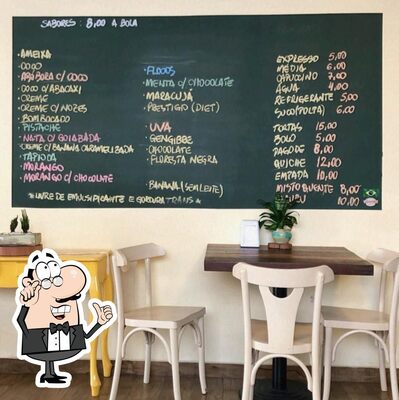 SABORES: 8,00 A BOLA
• AMEIXA
• COCO
• ABÓBORA C/ COCO
• COCO C/ ABACAXI
• CREME
• CREME C/ NOZES
• BOMBOCADO
• PISTACHE
• NATA C/ GOIABADA
• CREME C/ BANANA CARAMELIZADA
• TAPIOCA
• MORANGO
• MORANGO C/ CHOCOLATE
* LIVRE DE EMULSIFICANTE E GORDURA TRANS *
• FLOCOS
• MENTA C/ CHOCOLATE
• MARACUJÁ
• PRESTIGIO (DIET)
• UVA
• GENGIBRE
• CHOCOLATE
• FLORESTA NEGRA
• BANANA (SEM LEITE)
EXPRESSO 5,00
MÉDIA 6,00
CAPPUCCINO 7,00
ÁGUA 4,00
REFRIGERANTE 5,00
SUCO (POLPA) 6,00
TORTAS 15,00
BOLO 5,00
PAGODE 8,00
QUICHE 12,00
EMPADA 10,00
MISTO QUENTE 8,00
10,00